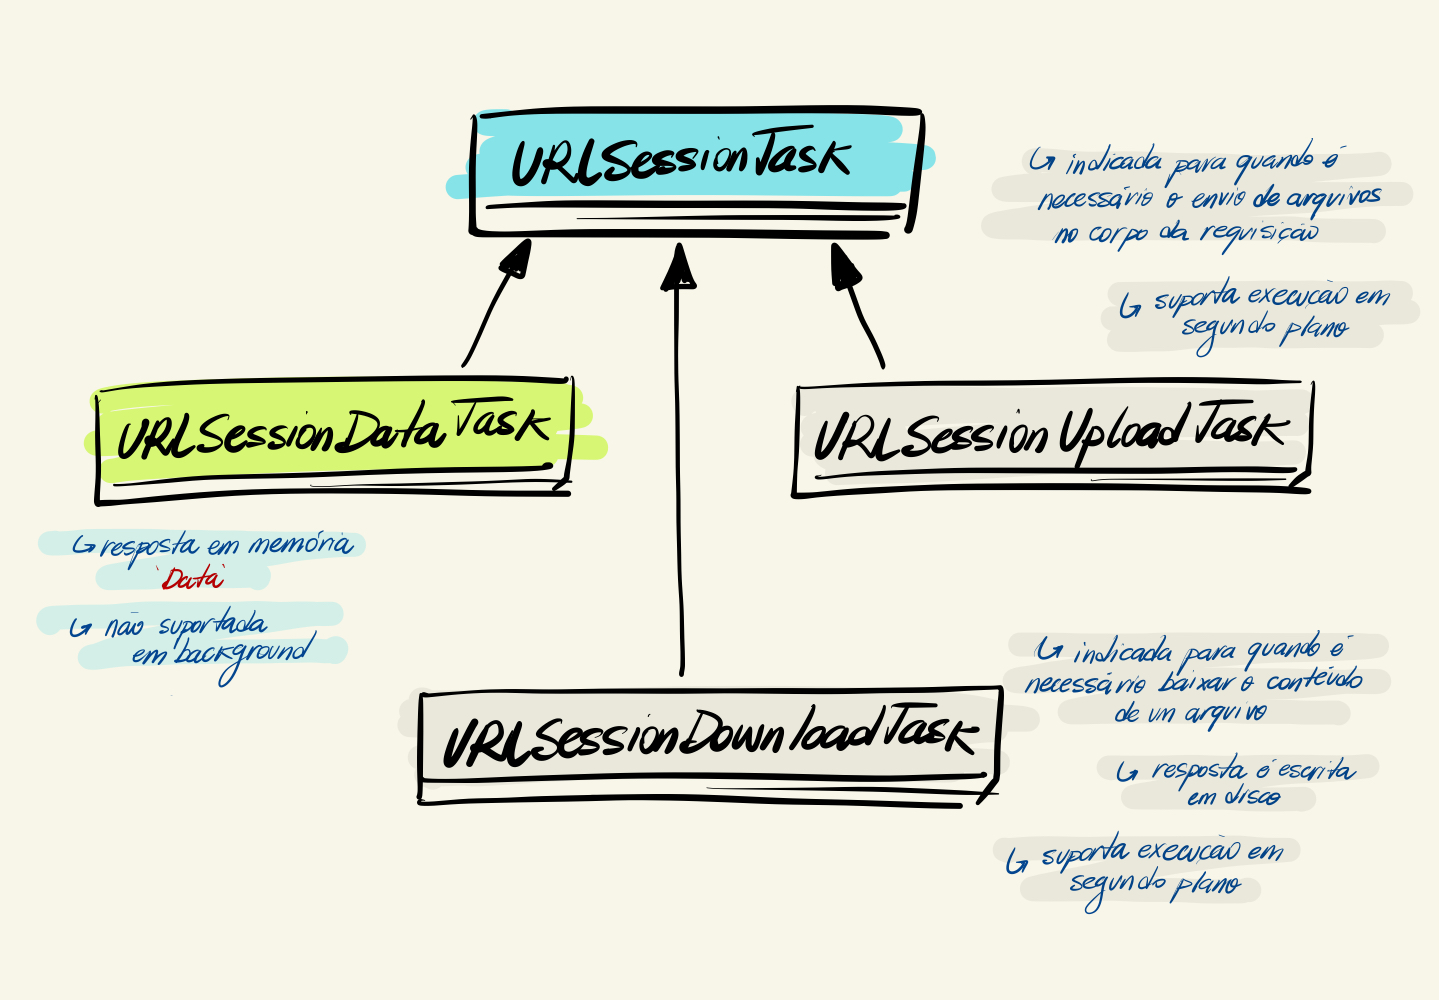 URLSessionTask
↳ indicada para quando é
necessário o envio de arquivos
no corpo da requisição
↳ suporta execução em
segundo plano
URLSessionDataTask
↳ resposta em memória
`Data`
↳ não suportada
em background
URLSessionUploadTask
URLSessionDownloadTask
↳ indicada para quando é
necessário baixar o conteúdo
de um arquivo
↳ resposta é escrita
em disco
↳ suporta execução em
segundo plano